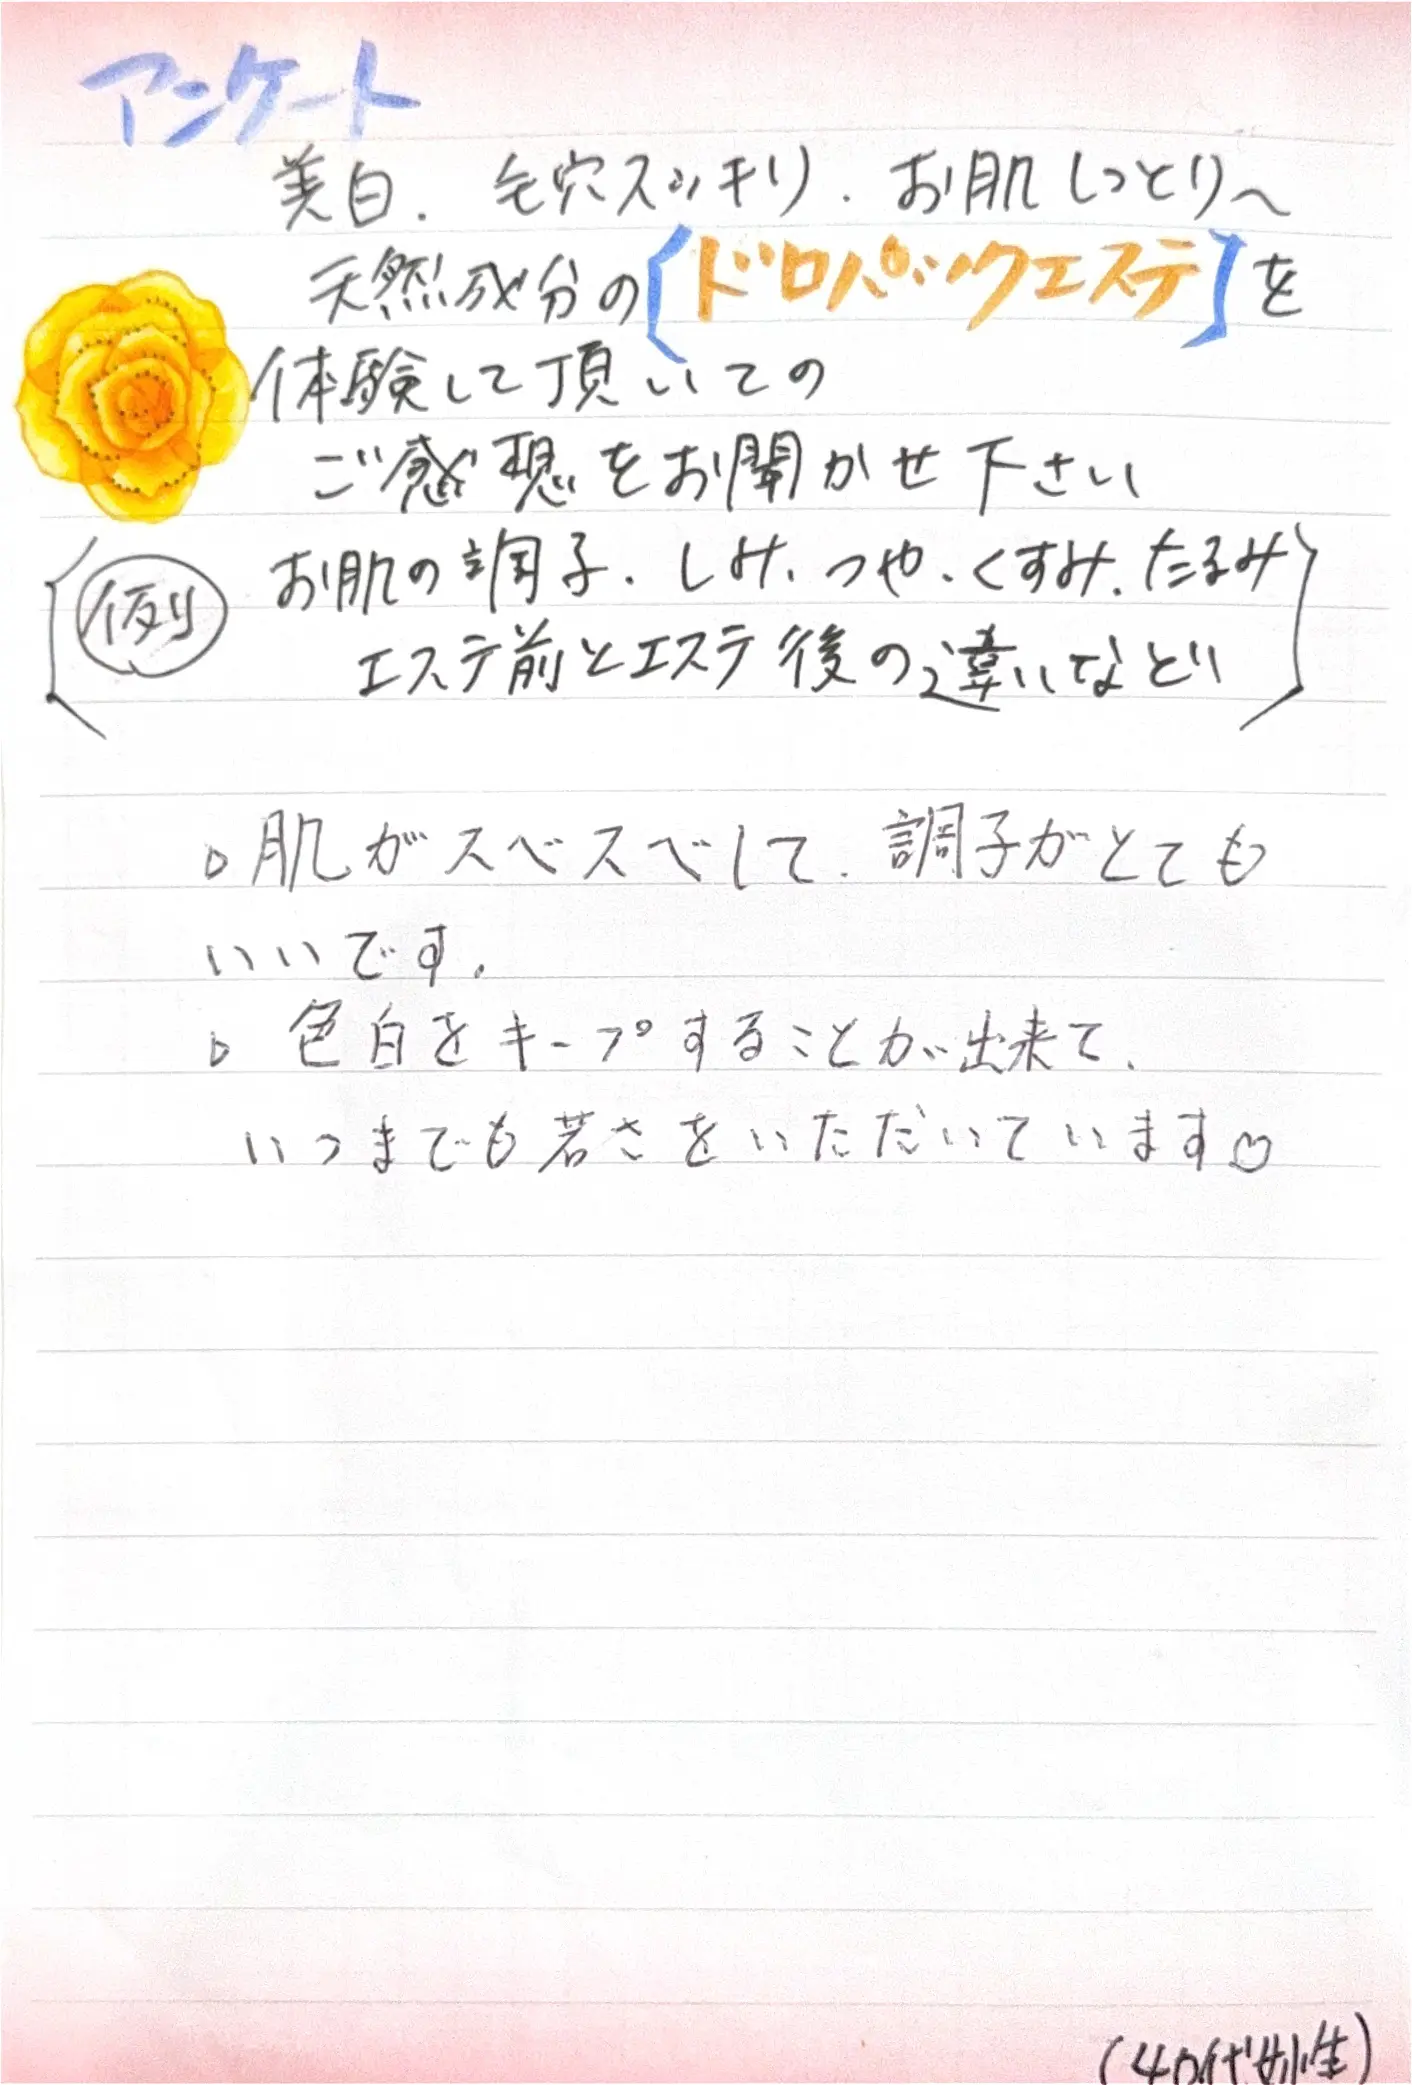 アンケート
美白．毛穴スッキリ．お肌しっとりへ
天然成分の【ドロパックエステ】を
体験して頂いての
ご感想をお聞かせ下さい
(例) お肌の調子．しみ、つや、くすみ．たるみ
エステ前とエステ後の違いなど
。肌がスベスベして、調子がとても
いいです。
。色白をキープすることが出来て、
いつまでも若さをいただいています♡
(40代女性)